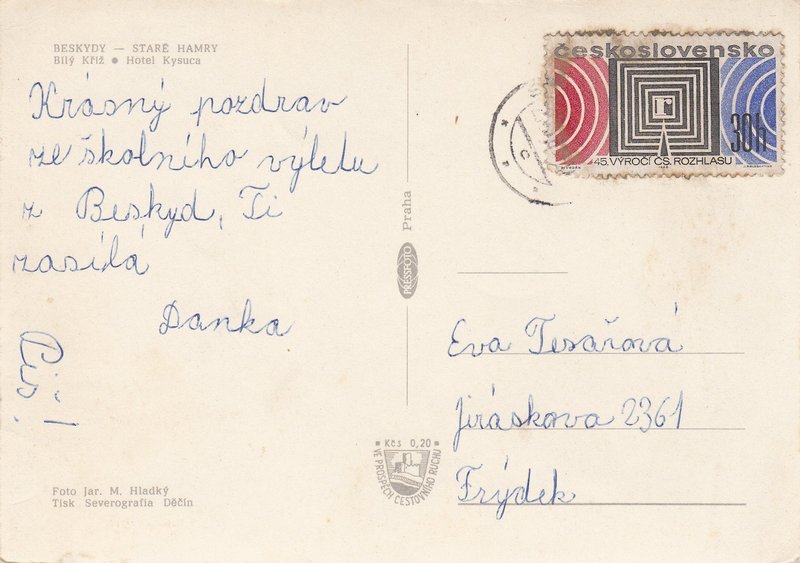 BESKYDY — STARÉ HAMRY
Bílý Kříž ● Hotel Kysuca
Krásný pozdrav
ze školního výletu
z Beskyd, Ti
zasílá
Danka
Foto Jar. M. Hladký
Tisk Severografia Děčín
Praha
PRESSFOTO
Kčs 0,20
VE PROSPĚCH CESTOVNÍHO RUCHU
československo
30h
45. VÝROČÍ ČS. ROZHLASU
Eva Tesařová
Jiráskova 2361
Frýdek